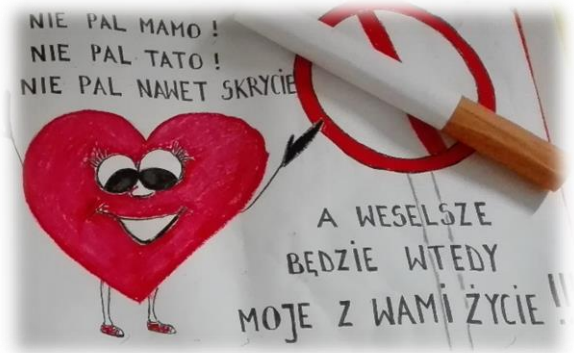 NIE PAL MAMO!
NIE PAL TATO!
NIE PAL NAWET SKRYCIE
A WESELSZE
BĘDZIE WTEDY
MOJE Z WAMI ŻYCIE!!!